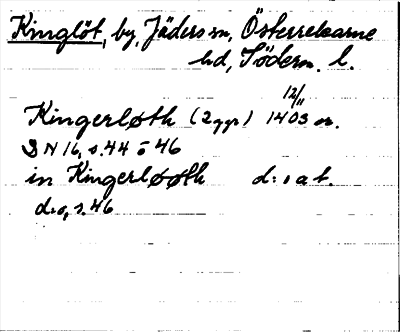 Kinglöt, by, Jäders sn, Österrekarne
hd, Söderm. l.
Kingerløth (2 ggr) 12/11 1403 or.
DN 16, s. 44 o 46
in Kingerløøth d:o at.
d:o, s. 46